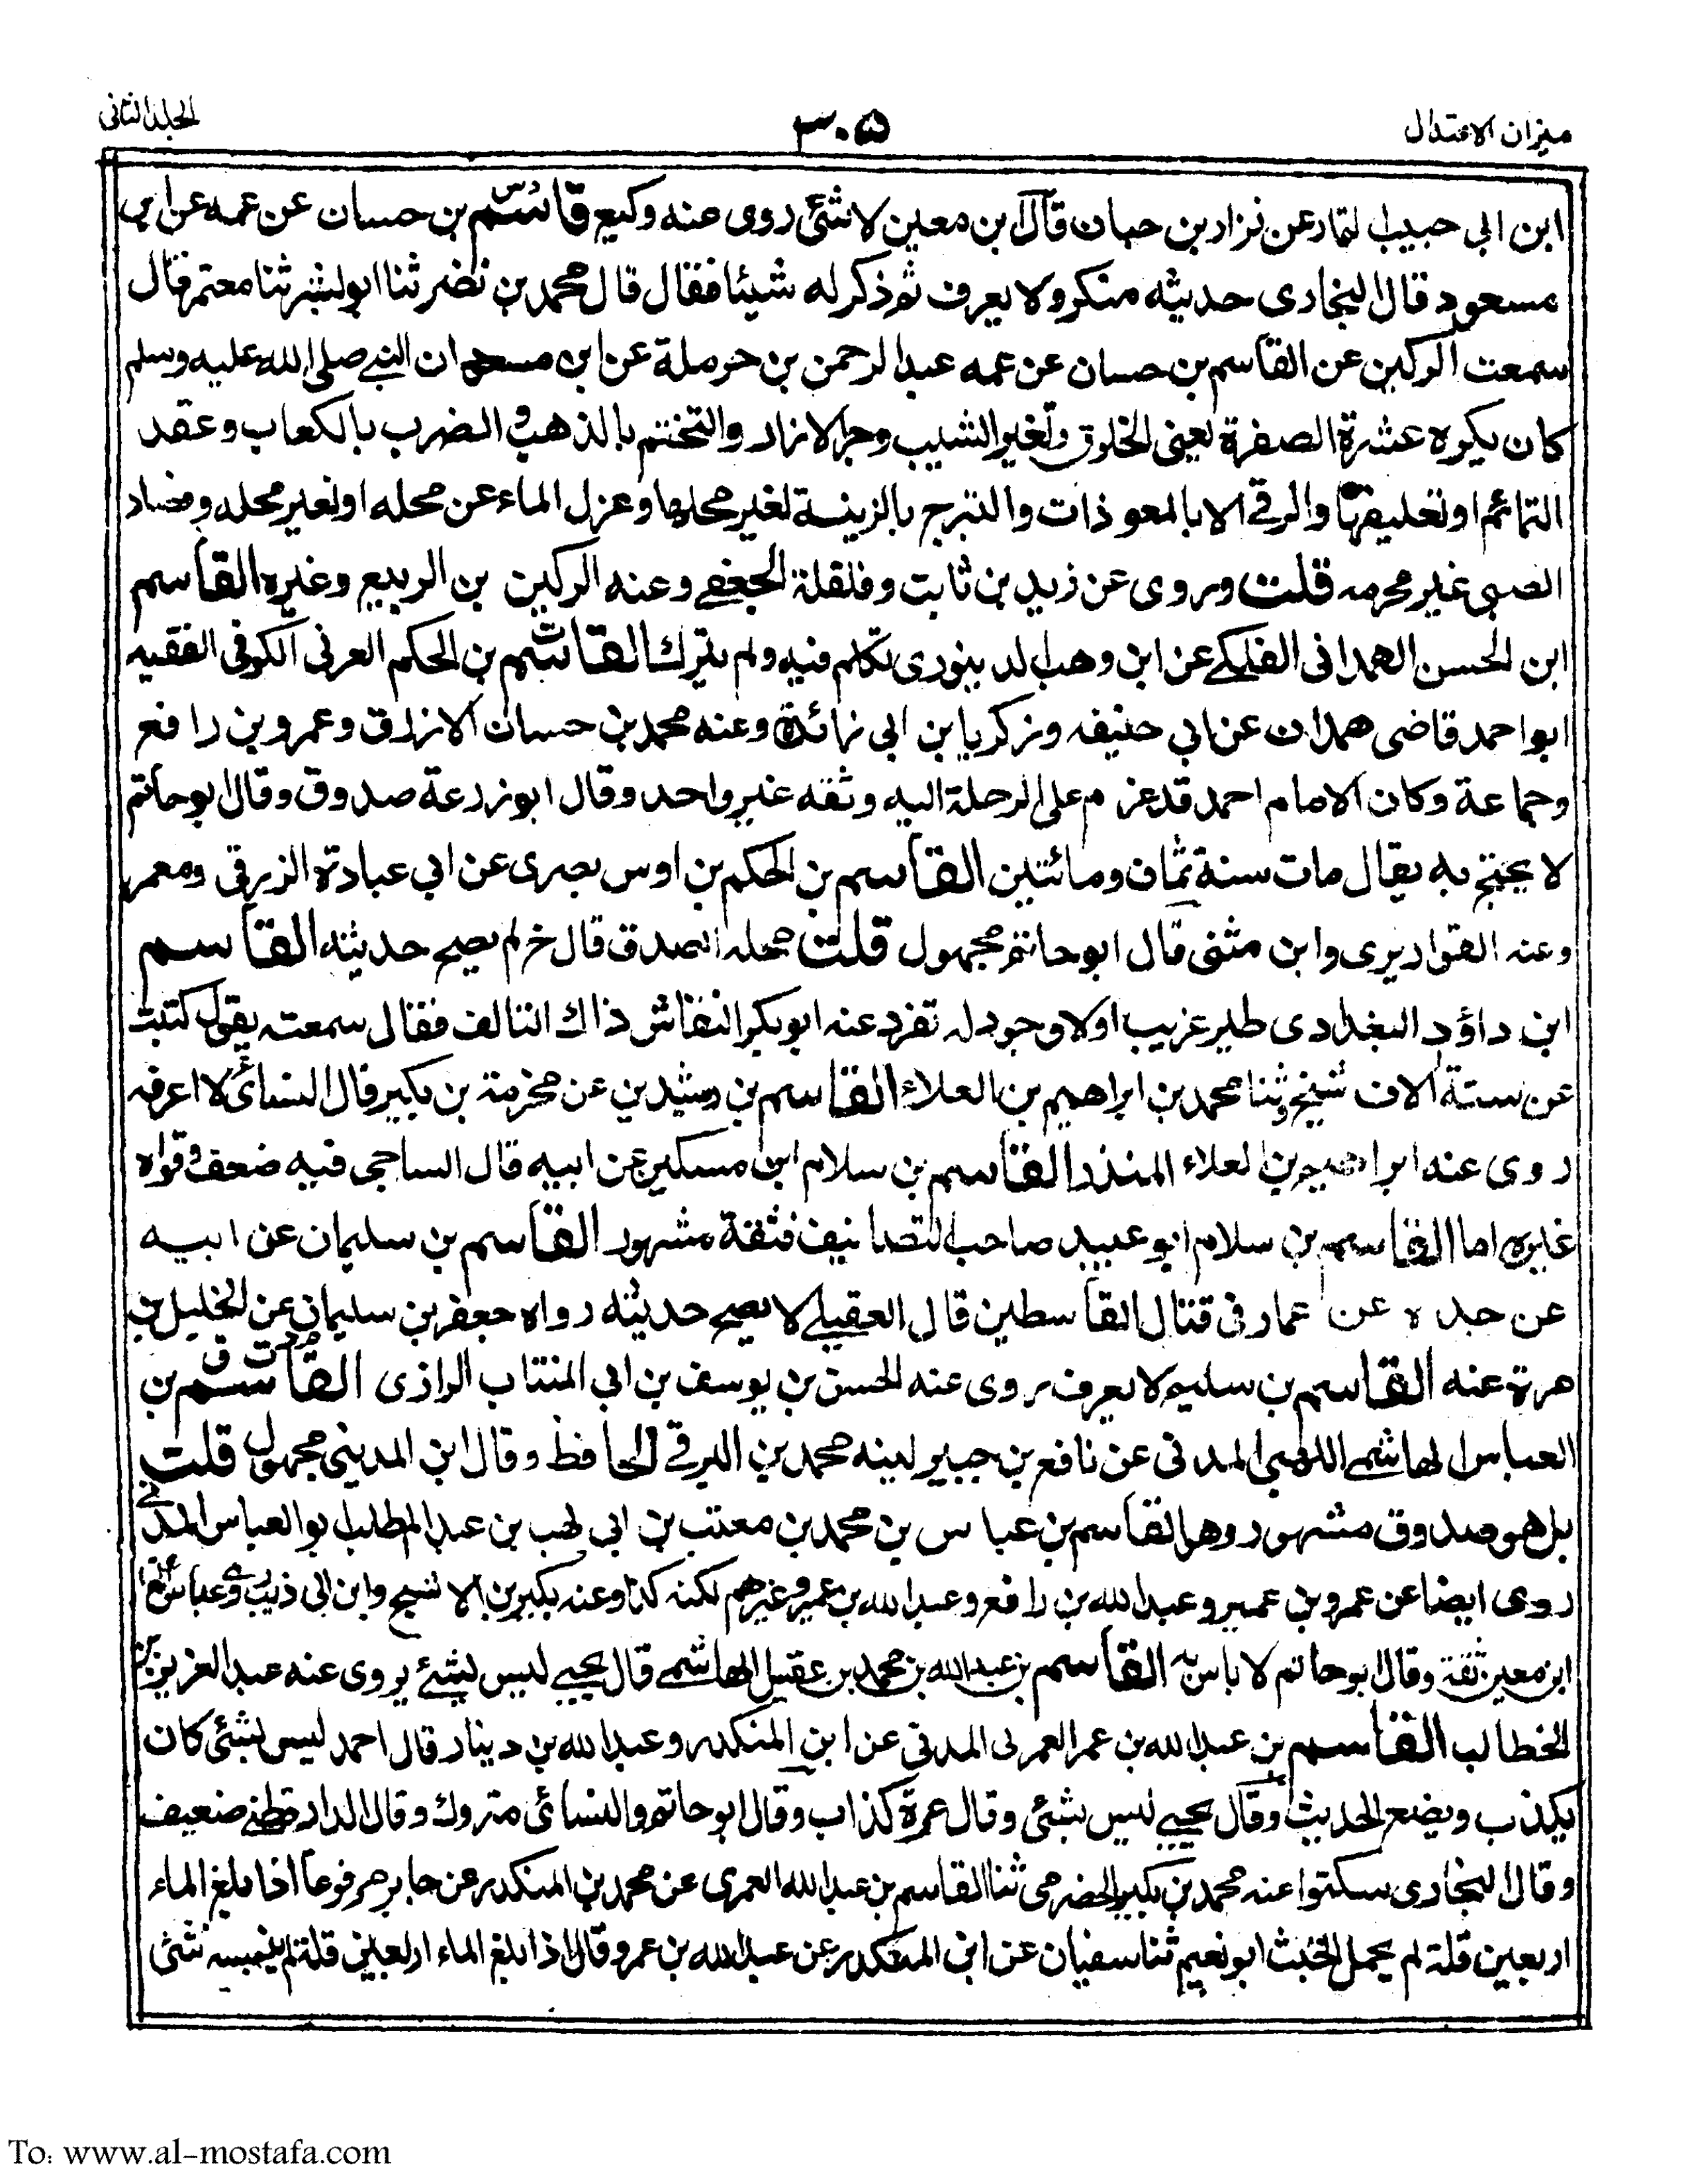 ميزان الاعتدال
٣٠٥
الجلد الثانى
ابن ابي حبيب التمار عن نزار بن حبان قال ابن معين لا شئ روى عنه وكيع قاسم بن حسان عن عمه عن ابن
مسعود قال البخارى حديثه منكر ولا يعرف ثم ذكر له شيئا فقال قال محمد بن نضر ثنا ابو بشر ثنا معتمر قال
سمعت الركين عن القاسم بن حسان عن عمه عبد الرحمن بن حرملة عن ابن مسعود ان النبي صلى الله عليه وسلم
كان يكره عشرة الصفرة يعنى الخلوق وتغير الشيب وجر الازار والتختم بالذهب والضرب بالكعاب وعقد
التمائم او تعليقها والرقى الا بالمعوذات والتبرج بالزينة لغير محلها وعزل الماء عن محله او لغير محله وفساد
الصبى غير محرمه قلت وروى عن زيد بن ثابت وفلفلة الجعفى وعنه الركين بن الربيع وغيره القاسم
ابن الحسن الهمدانى الفلكى عن ابن وهب الدينورى تكلم فيه ولم يترك القاسم بن الحكم العرنى الكوفى الفقيه
ابو احمد قاضى همدان عن ابي حنيفه وزكريا بن ابي زائدة وعنه محمد بن حسان الازرق وعمرو بن رافع
وجماعة وكان الامام احمد قد عزم على الرحلة اليه وثقه غير واحد وقال ابو زرعة صدوق وقال ابو حاتم
لا يحتج به يقال مات سنة ثمان ومائتين القاسم بن الحكم بن اوس بصرى عن ابي عبادة الزرقى ومعمر
وعنه القواريرى وابن مثنى قال ابو حاتم مجهول قلت محله الصدق قال خ لم يصح حديثه القاسم
ابن داؤد البغدادى طير غريب اولا وجود له تفرد عنه ابو بكر النقاش ذاك التالف فقال سمعته يقول كتبت
عن ستة الاف شيخ وثنا محمد بن ابراهيم بن العلاء القاسم بن رشدين عن مخرمة بن بكير قال النسائى لا اعرفه
روى عنه ابراهيم بن العلاء المنذر القاسم بن سلام ابن مسكين عن ابيه قال الساجى فيه ضعف وقواه
غيره اما القاسم بن سلام ابو عبيد صاحب التصانيف فثقة مشهور القاسم بن سليمان عن ابيه
عن جده عن عمار فى قتال القاسطين قال العقيلى لا يصح حديثه رواه جعفر بن سليمان عن الخليل بن
مرة عنه القاسم بن سليم لا يعرف روى عنه الحسن بن يوسف بن ابي المنتاب الرازى القاسم بن
العباس الهاشمى اللهبى المدنى عن نافع بن جبير لينه محمد بن البرقى الحافظ وقال ابن المدينى مجهول قلت
بل هو صدوق مشهور وهو القاسم بن عباس بن محمد بن معتب بن ابي لهب بن عبد المطلب ابو العباس المدنى
روى ايضا عن عمرو بن عمير وعبد الله بن رافع وعبد الله بن عمير وغيرهم لكنه كذا وعنه بكير بن الاشج وابن ابي ذيب وعباس
ابن معين ثقة وقال ابو حاتم لا باس به القاسم بن عبد الله بن محمد بن عقيل الهاشمى قال يحيى ليس بشئ يروى عنه عبد العزيز بن
الخطاب القاسم بن عبد الله بن عمر العمرى المدنى عن ابن المنكدر وعبد الله بن دينار قال احمد ليس بشئ كان
يكذب ويضع الحديث وقال يحيى ليس بشئ وقال مرة كذاب وقال ابو حاتم والنسائى متروك وقال الدارقطنى ضعيف
وقال البخارى سكتوا عنه محمد بن بكير الحضرمى ثنا القاسم بن عبد الله العمرى عن محمد بن المنكدر عن جابر مرفوعا اذا بلغ الماء
اربعين قلة لم يحمل الخبث ابو نعيم ثنا سفيان عن ابن المنكدر عن عبد الله بن عمرو قال اذا بلغ الماء اربعين قلة لم ينجسه شئ
To: www.al-mostafa.com